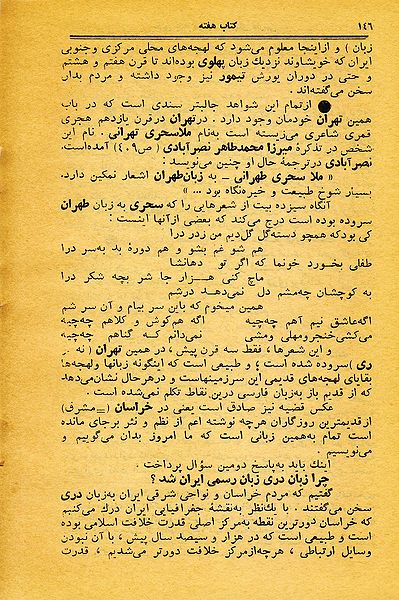 ۱۴۶
کتاب هفته
زبان ) و ازاینجا معلوم می‌شود که لهجه‌های محلی مرکزی وجنوبی
ایران که خویشاوند نزدیك زبان پهلوی بوده‌اند تا قرن هفتم و هشتم
و حتی در دوران یورش تیمور نیز وجود داشته و مردم بدان
سخن می‌گفته‌اند.
ازتمام این شواهد جالبتر سندی است که در باب
همین تهران خودمان وجود دارد . درتهران درقرن یازدهم هجری
قمری شاعری می‌زیسته است به‌نام ملاسحری تهرانی . نام این
شخص در تذکرهٔ میرزا محمدطاهر نصرآبادی ( ص۴۰۹) آمده‌است.
نصرآبادی درترجمهٔ حال او چنین می‌نویسد :
« ملا سحری طهرانی ـ به زبان‌طهران اشعار نمکین دارد.
بسیار شوخ طبیعت و خیره‌نگاه بود ... »
آنگاه سیزده بیت از شعرهایی را که سحری به زبان طهران
سروده بوده است درج می‌کند که بعضی ازآنها اینست :
کی بودکه همچو دسته‌گل گل‌دیم من زدر درا
هم شو غم بشو و هم دورهٔ بد به‌سر درا
طفلی بخورد خونما که اگر تو دهانشا
ماچ کنی هـــزار جا شر بچه شکر درا
به کوچشان چه‌مشم دل نمی‌دهـد درشم
همین میخوم که باین سر بیام و آن سر شم
اگه‌عاشق نیم آهم چه‌چیه اگه هم‌کوش و کلاهم چه‌چیه
می‌کشی‌خنجرومهلی ومشی نمی‌دانم کـه گناهم چه‌چیه
و این شعرها ، فقط سه قرن پیش ، در همین تهران ( نه
ری ) سروده شده است ؛ و طبیعی است که اینگونه زبانها ولهجه‌ها
بقایای لهجه‌های قدیمی این سرزمینهاست و درهرحال نشان‌می‌دهد
که از قدیم باز به‌زبان فارسی درین نقاط تکلم نمی‌شده است .
عکس قضیه نیز صادق است یعنی در خراسان (=مشرق)
ازقدیمترین روزگاران هرچه نوشته اعم از نظم و نثر برجای مانده
است تمام به‌همین زبانی است که ما امروز بدان می‌گوییم و
می‌نویسیم .
اینك باید به‌پاسخ دومین سؤال پرداخت .
چرا زبان دری زبان رسمی ایران شد ؟
گفتیم که مردم خراسان و نواحی شرقی ایران به‌زبان دری
سخن می‌گفتند . با یك‌نظر به‌نقشهٔ جغرافیایی ایران درك می‌کنیم
که خراسان دورترین نقطه به‌مرکز اصلی قدرت خلافت اسلامی بوده
است و طبیعی است که در هزار و سیصد سال پیش ، با آن نبودن
وسایل ارتباطی ، هرچه‌ازمرکز خلافت دورتر می‌شدیم ، قدرت